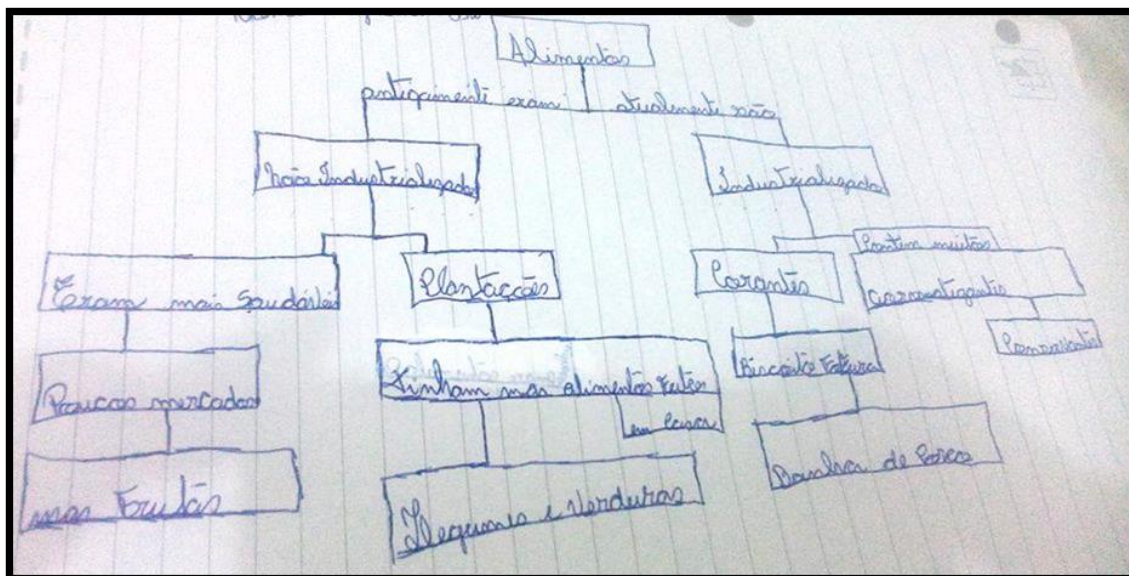 Alimentos
antigamente eram
atualmente não
Não Industrializado
Industrializado
Contem muitos
Eram mais Saudáveis
Plantaccões
Corantes
Conservantes
Poucos mercados
Tinham mas alimentos Feitos
em casa
Biscoito
mas Frutas
Legumes e Verduras
Banha de Porco